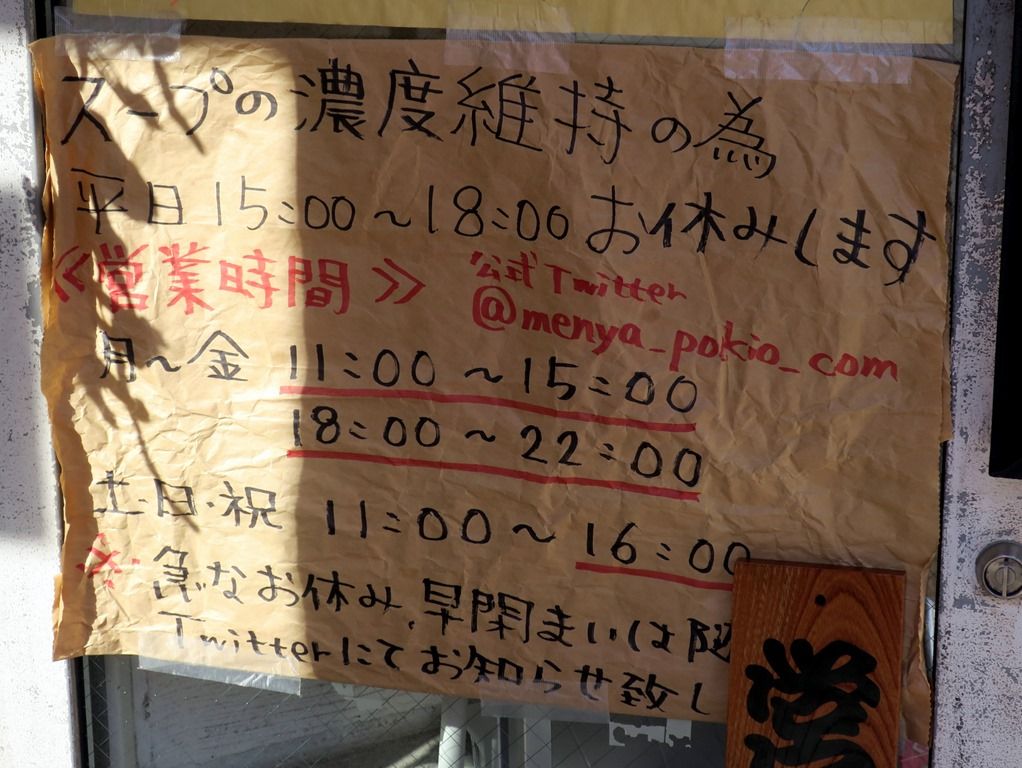 スープの濃度維持の為
平日15:00~18:00お休みします
《営業時間》
公式Twitter
@menya_pokio_com
月~金 11:00~15:00
18:00~22:00
土・日・祝 11:00~16:00
※急なお休み、早閉まいは
Twitterにてお知らせ致し
営